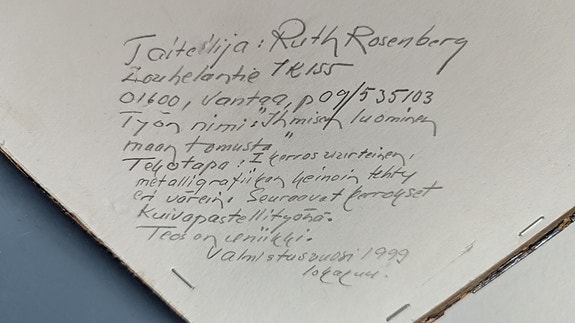 Taiteilija: Ruth Rosenberg
Louhelantie 1K155
01600, Vantaa, p 09/535103
Työn nimi: "Ihmisen luominen
maan tomusta"
Tekotapa: I kerros viirteinen,
metalligrafiikan keinoin tehty
eri värein. Seuraavat kerrokset
Kuivapastellityönä.
Teos on uniikki.
Valmistusvuosi 1999
lokakuu.